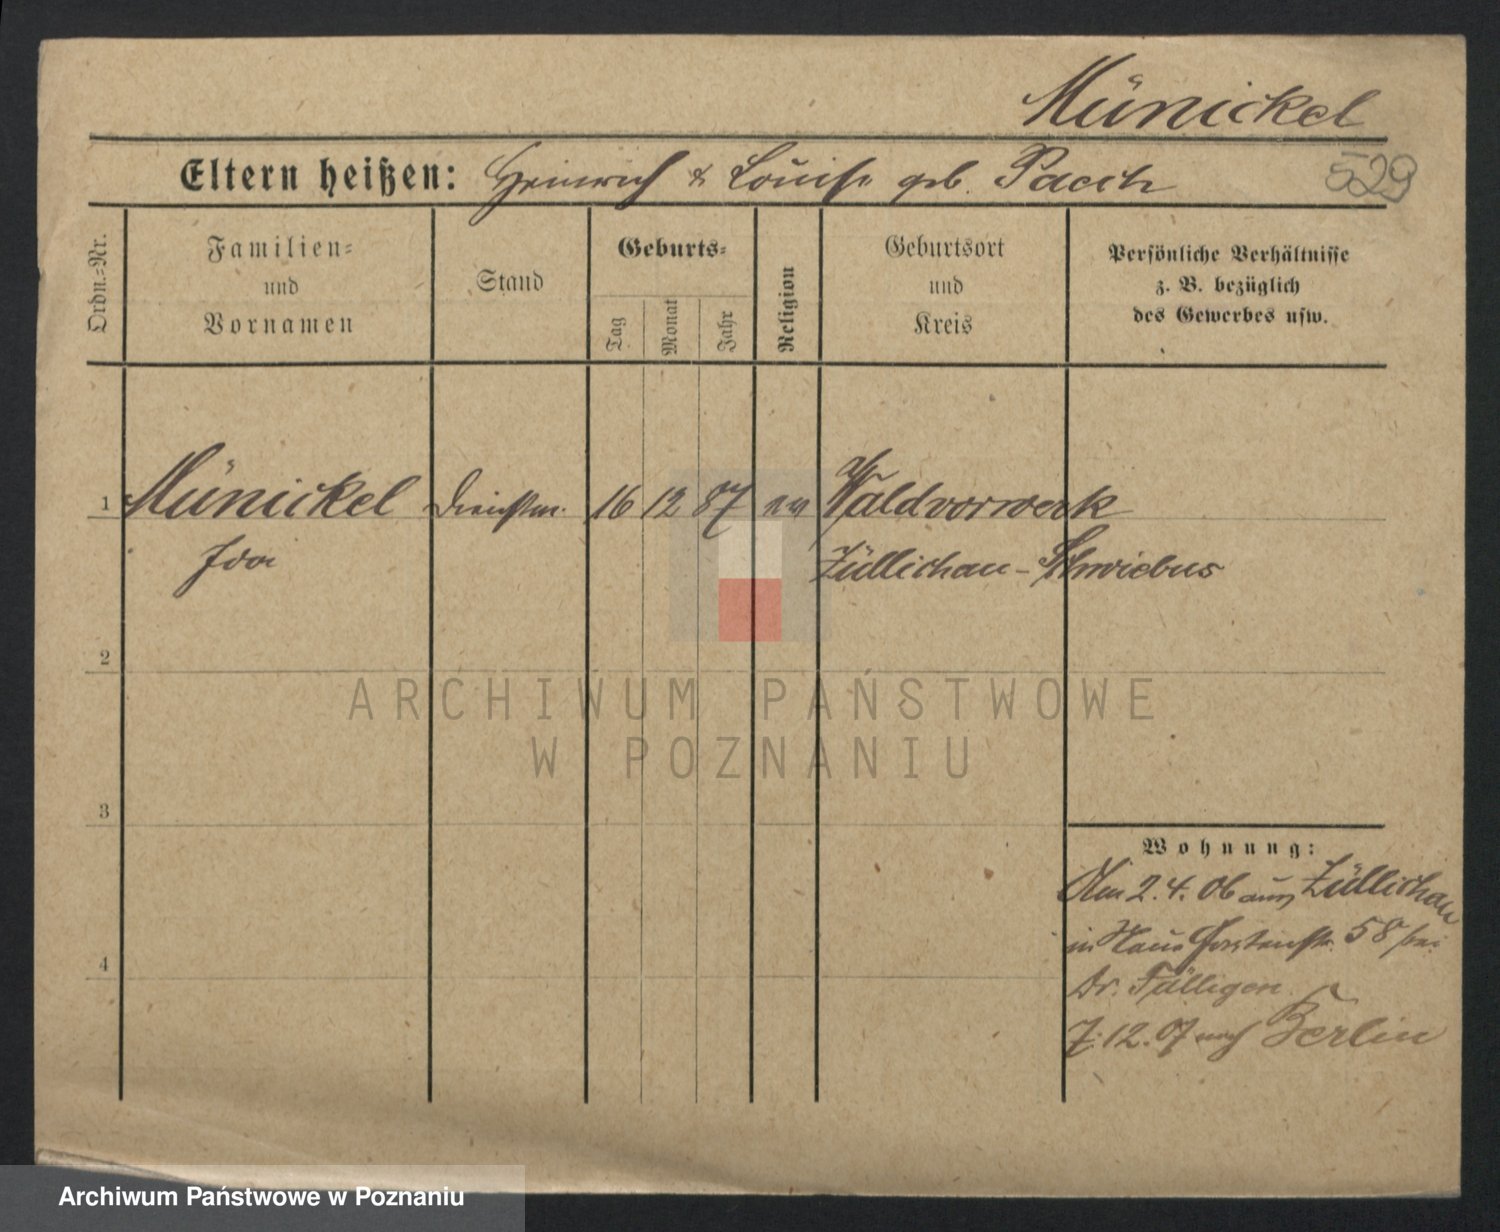 Münickel
Eltern heißen: Heinrich & Louise geb. Pacch
529
Ordn.-Nr.
Familien-
und
Vornamen
Stand
Geburts-
Tag
Monat
Jahr
Religion
Geburtsort
und
Kreis
Persönliche Verhältnisse
z. B. bezüglich
des Gewerbes usw.
1 Münickel Dienstm. 16 12 87 ev Waldvorwerk
Ida Züllichau-Schwiebus
2
ARCHIWUM PAŃSTWOWE
W POZNANIU
3
Wohnung:
Am 2.4.06 aus Züllichau
in 58 bei
4
Dr.
7.12.07 nach Berlin
Archiwum Państwowe w Poznaniu